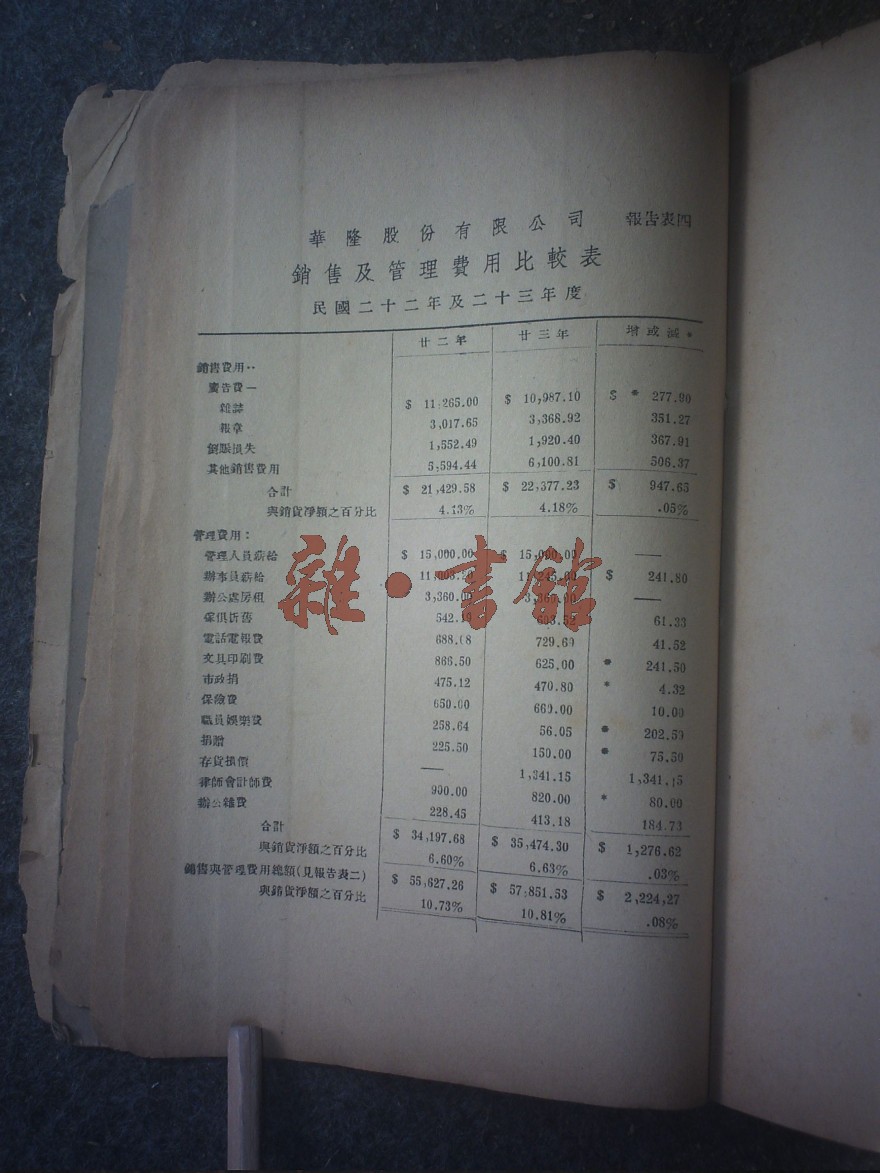 報告表四
華隆股份有限公司
銷售及管理費用比較表
民國二十二年及二十三年度
廿二年 廿三年 增或減*
銷售費用··
廣告費—
雜誌 $ 11,265.00 $ 10,987.10 $ * 277.90
報章 3,017.65 3,368.92 351.27
倒賬損失 1,552.49 1,920.40 367.91
其他銷售費用 5,594.44 6,100.81 506.37
合計 $ 21,429.58 $ 22,377.23 $ 947.65
與銷貨淨額之百分比 4.13% 4.18% .05%
管理費用:
管理人員薪給 $ 15,000.00 $ 15,000.00 —
辦事員薪給 11,003.20 11,245.00 $ 241.80
辦公處房租 3,360.00 3,360.00 —
傢俱折舊 542.19 603.52 61.33
電話電報費 688.08 729.60 41.52
文具印刷費 866.50 625.00 * 241.50
市政捐 475.12 470.80 * 4.32
保險費 650.00 660.00 10.00
職員娛樂費 258.64 56.05 * 202.59
捐贈 225.50 150.00 * 75.50
存貨損價 — 1,341.15 1,341.15
律師會計師費 900.00 820.00 * 80.00
辦公雜費 228.45 413.18 184.73
合計 $ 34,197.68 $ 35,474.30 $ 1,276.62
與銷貨淨額之百分比 6.60% 6.63% .03%
銷售與管理費用總額(見報告表二) $ 55,627.26 $ 57,851.53 $ 2,224,27
與銷貨淨額之百分比 10.73% 10.81% .08%
雜·書館